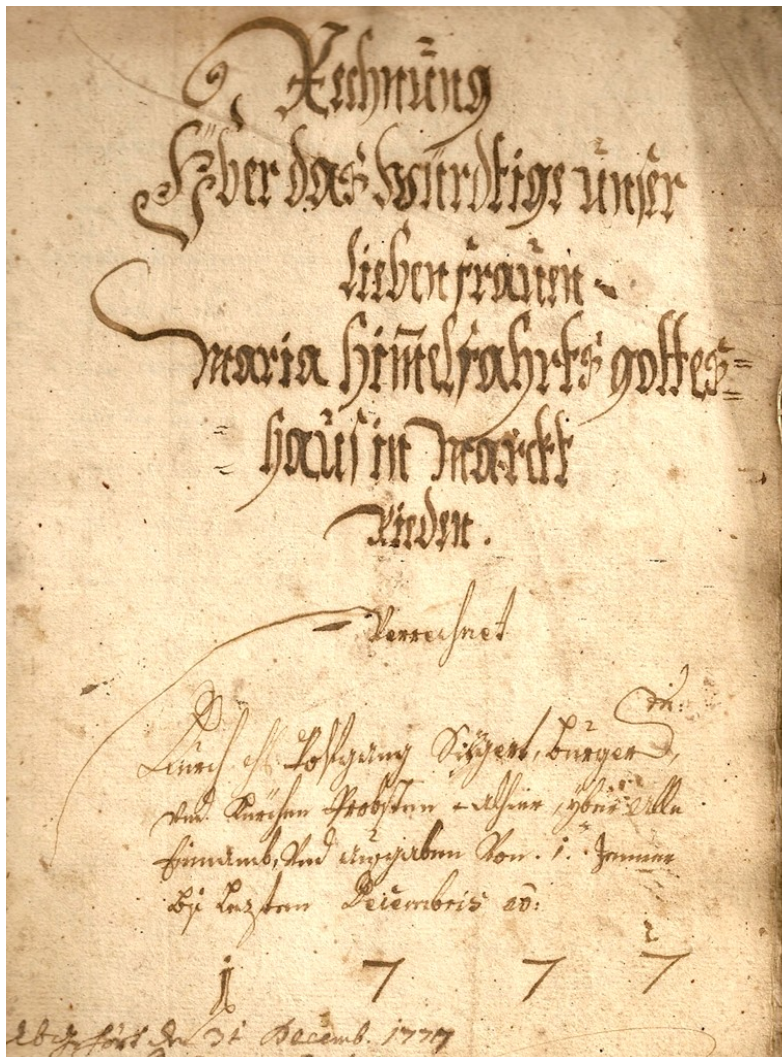 Rechnung
Yber das würdtige unser
lieben frauen
Maria Him̄elfahrts gottes=
=haus in Marckt
Rieden.
Verrechnet
Durch Wolfgang, burger
und Kürchen Probsten alhier, yber alle
Einnamb, und ausgaben Von .1. Jenner
bis lezten Decembris ao:
1 7 7 7.
den 31 Decemb. 1777